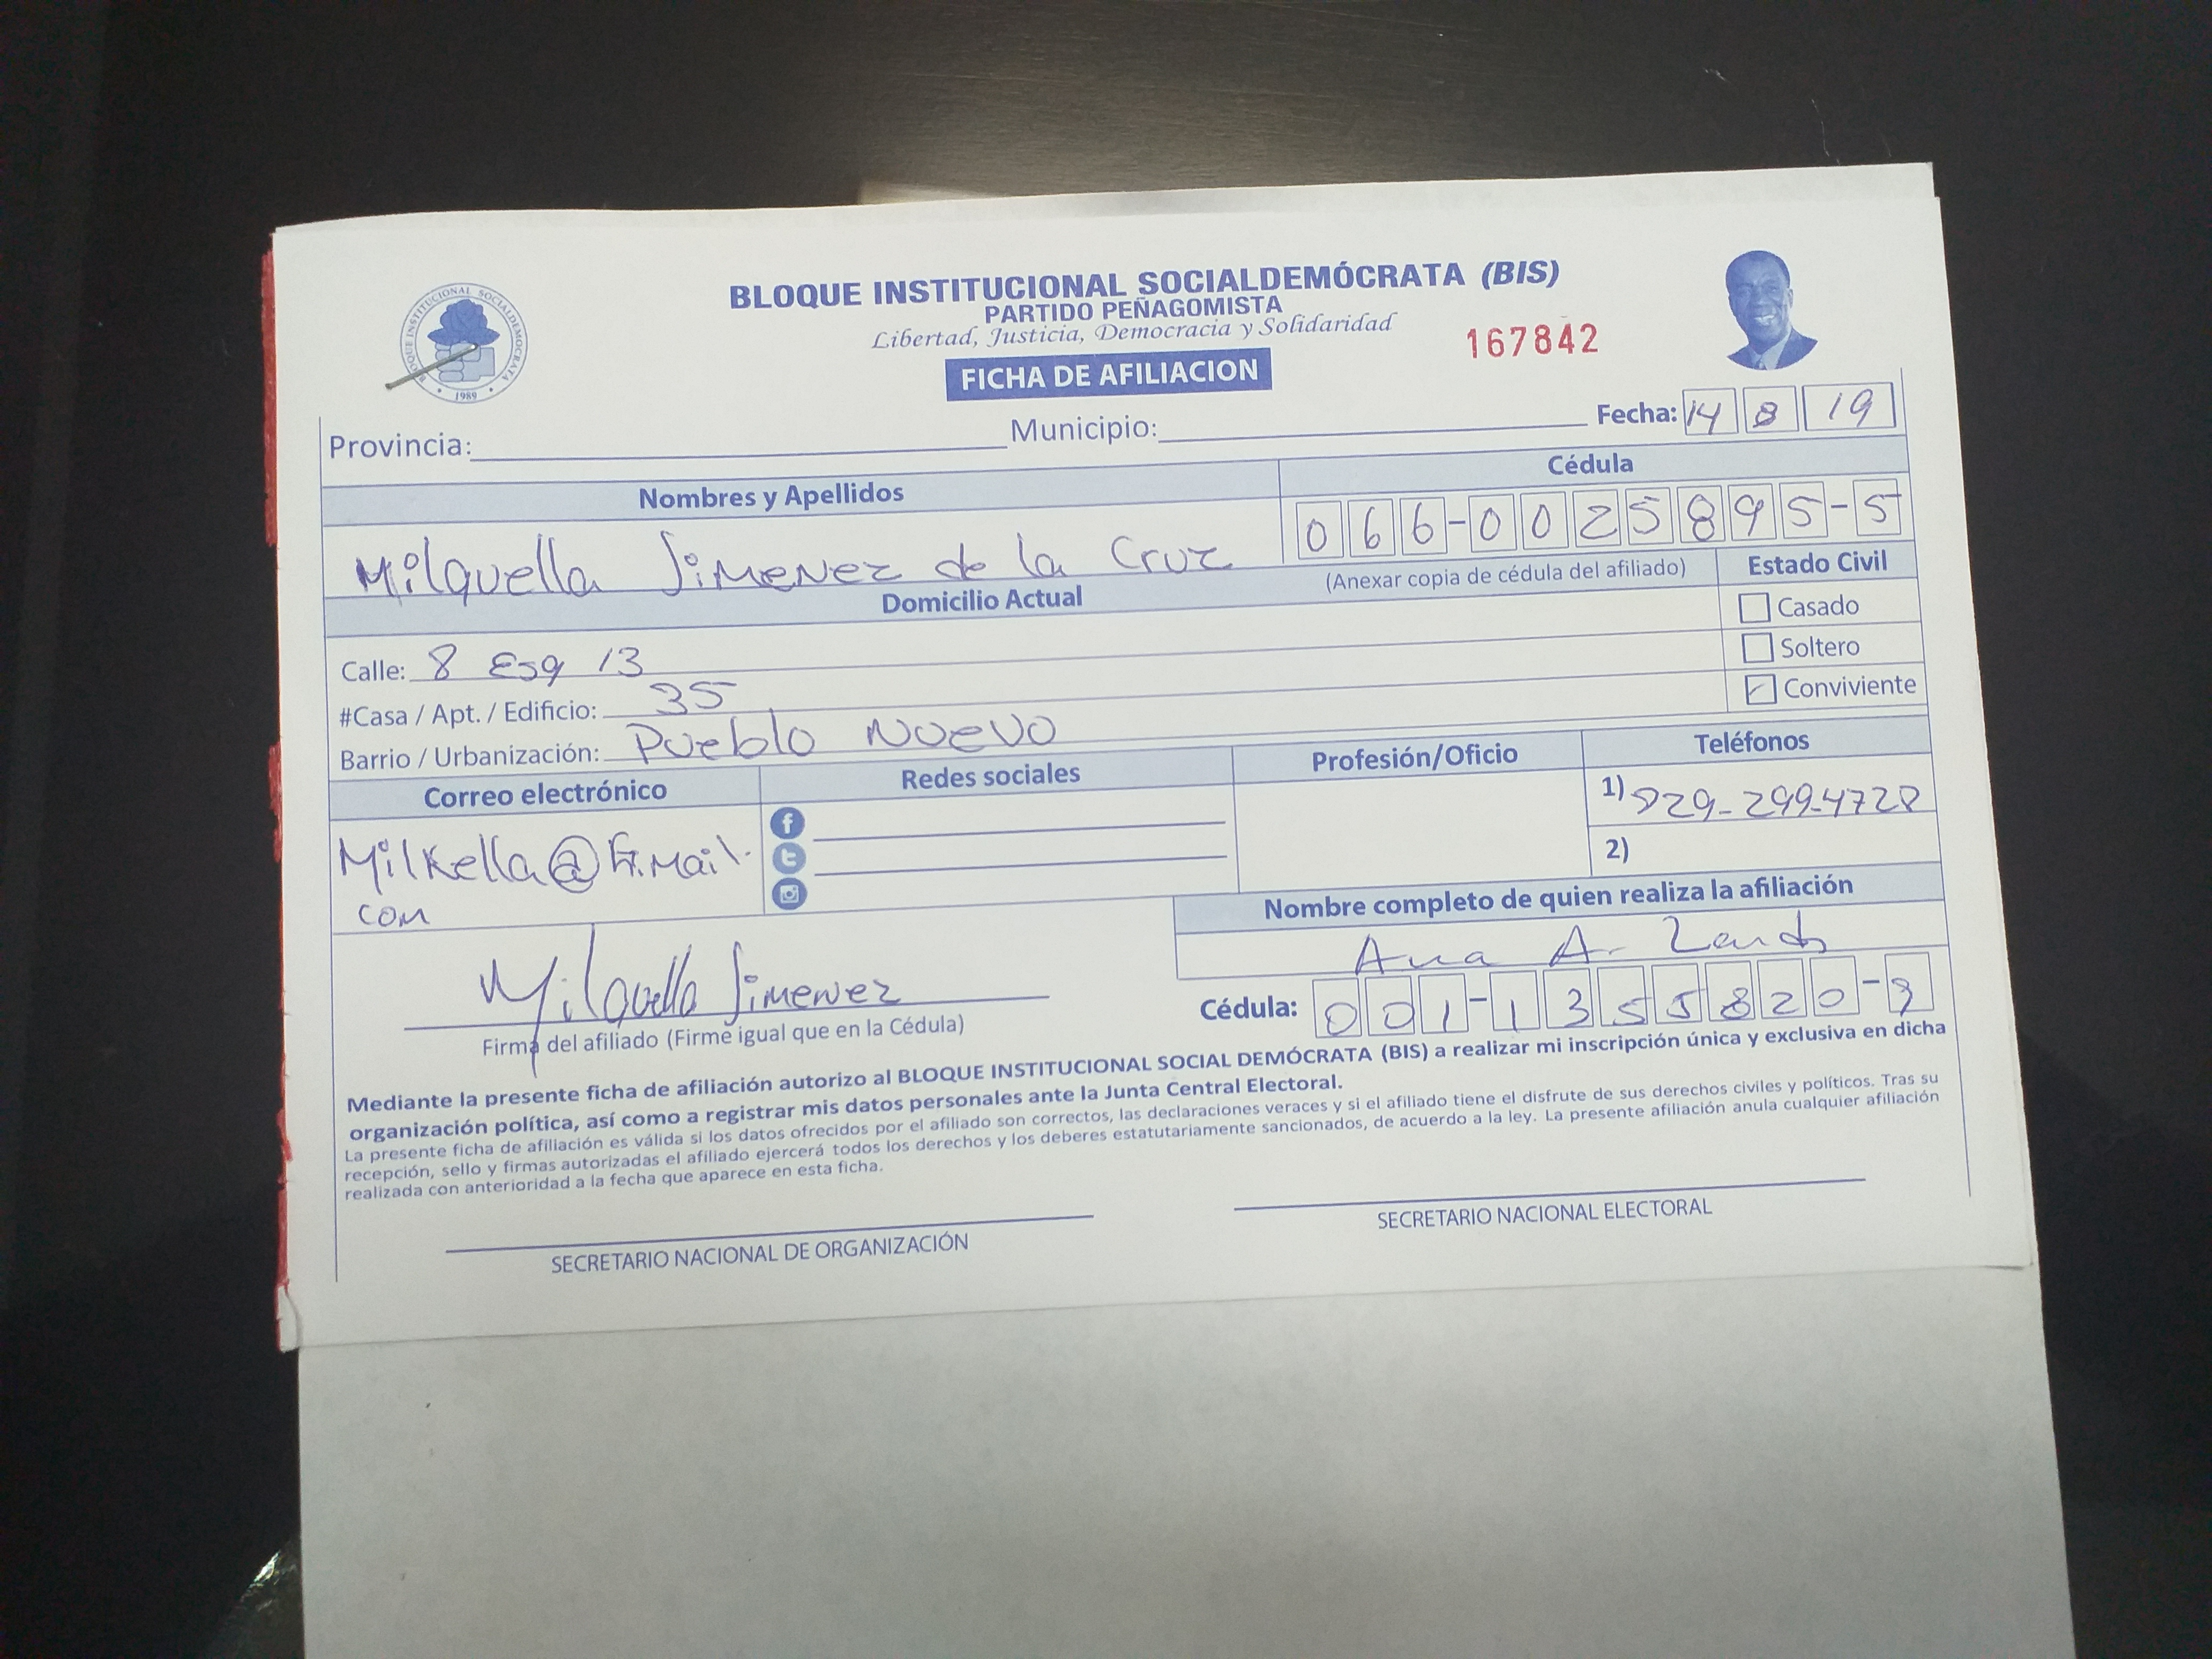 BLOQUE INSTITUCIONAL SOCIALDEMÓCRATA (BIS)
PARTIDO PEÑAGOMISTA
Libertad, Justicia, Democracia y Solidaridad
167842
FICHA DE AFILIACION
BLOQUE INSTITUCIONAL SOCIALDEMOCRATA
1989
Provincia: Municipio: Fecha: 14 8 19
Nombres y Apellidos Cédula
Milquella Jimenez de la Cruz 066-0025895-5
(Anexar copia de cédula del afiliado)
Domicilio Actual Estado Civil
Casado
Calle: 8 Esq 13 Soltero
#Casa / Apt. / Edificio: 35 Conviviente
Barrio / Urbanización: Pueblo Nuevo
Correo electrónico Redes sociales Profesión/Oficio Teléfonos
1) 829-299-4728
Milkella@G.mail. 2)
com
Nombre completo de quien realiza la afiliación
Ana A.
Milquella Jimenez Cédula: 001-1355820-9
Firma del afiliado (Firme igual que en la Cédula)
Mediante la presente ficha de afiliación autorizo al BLOQUE INSTITUCIONAL SOCIAL DEMÓCRATA (BIS) a realizar mi inscripción única y exclusiva en dicha
organización política, así como a registrar mis datos personales ante la Junta Central Electoral.
La presente ficha de afiliación es válida si los datos ofrecidos por el afiliado son correctos, las declaraciones veraces y si el afiliado tiene el disfrute de sus derechos civiles y políticos. Tras su
recepción, sello y firmas autorizadas el afiliado ejercerá todos los derechos y los deberes estatutariamente sancionados, de acuerdo a la ley. La presente afiliación anula cualquier afiliación
realizada con anterioridad a la fecha que aparece en esta ficha.
SECRETARIO NACIONAL DE ORGANIZACIÓN SECRETARIO NACIONAL ELECTORAL